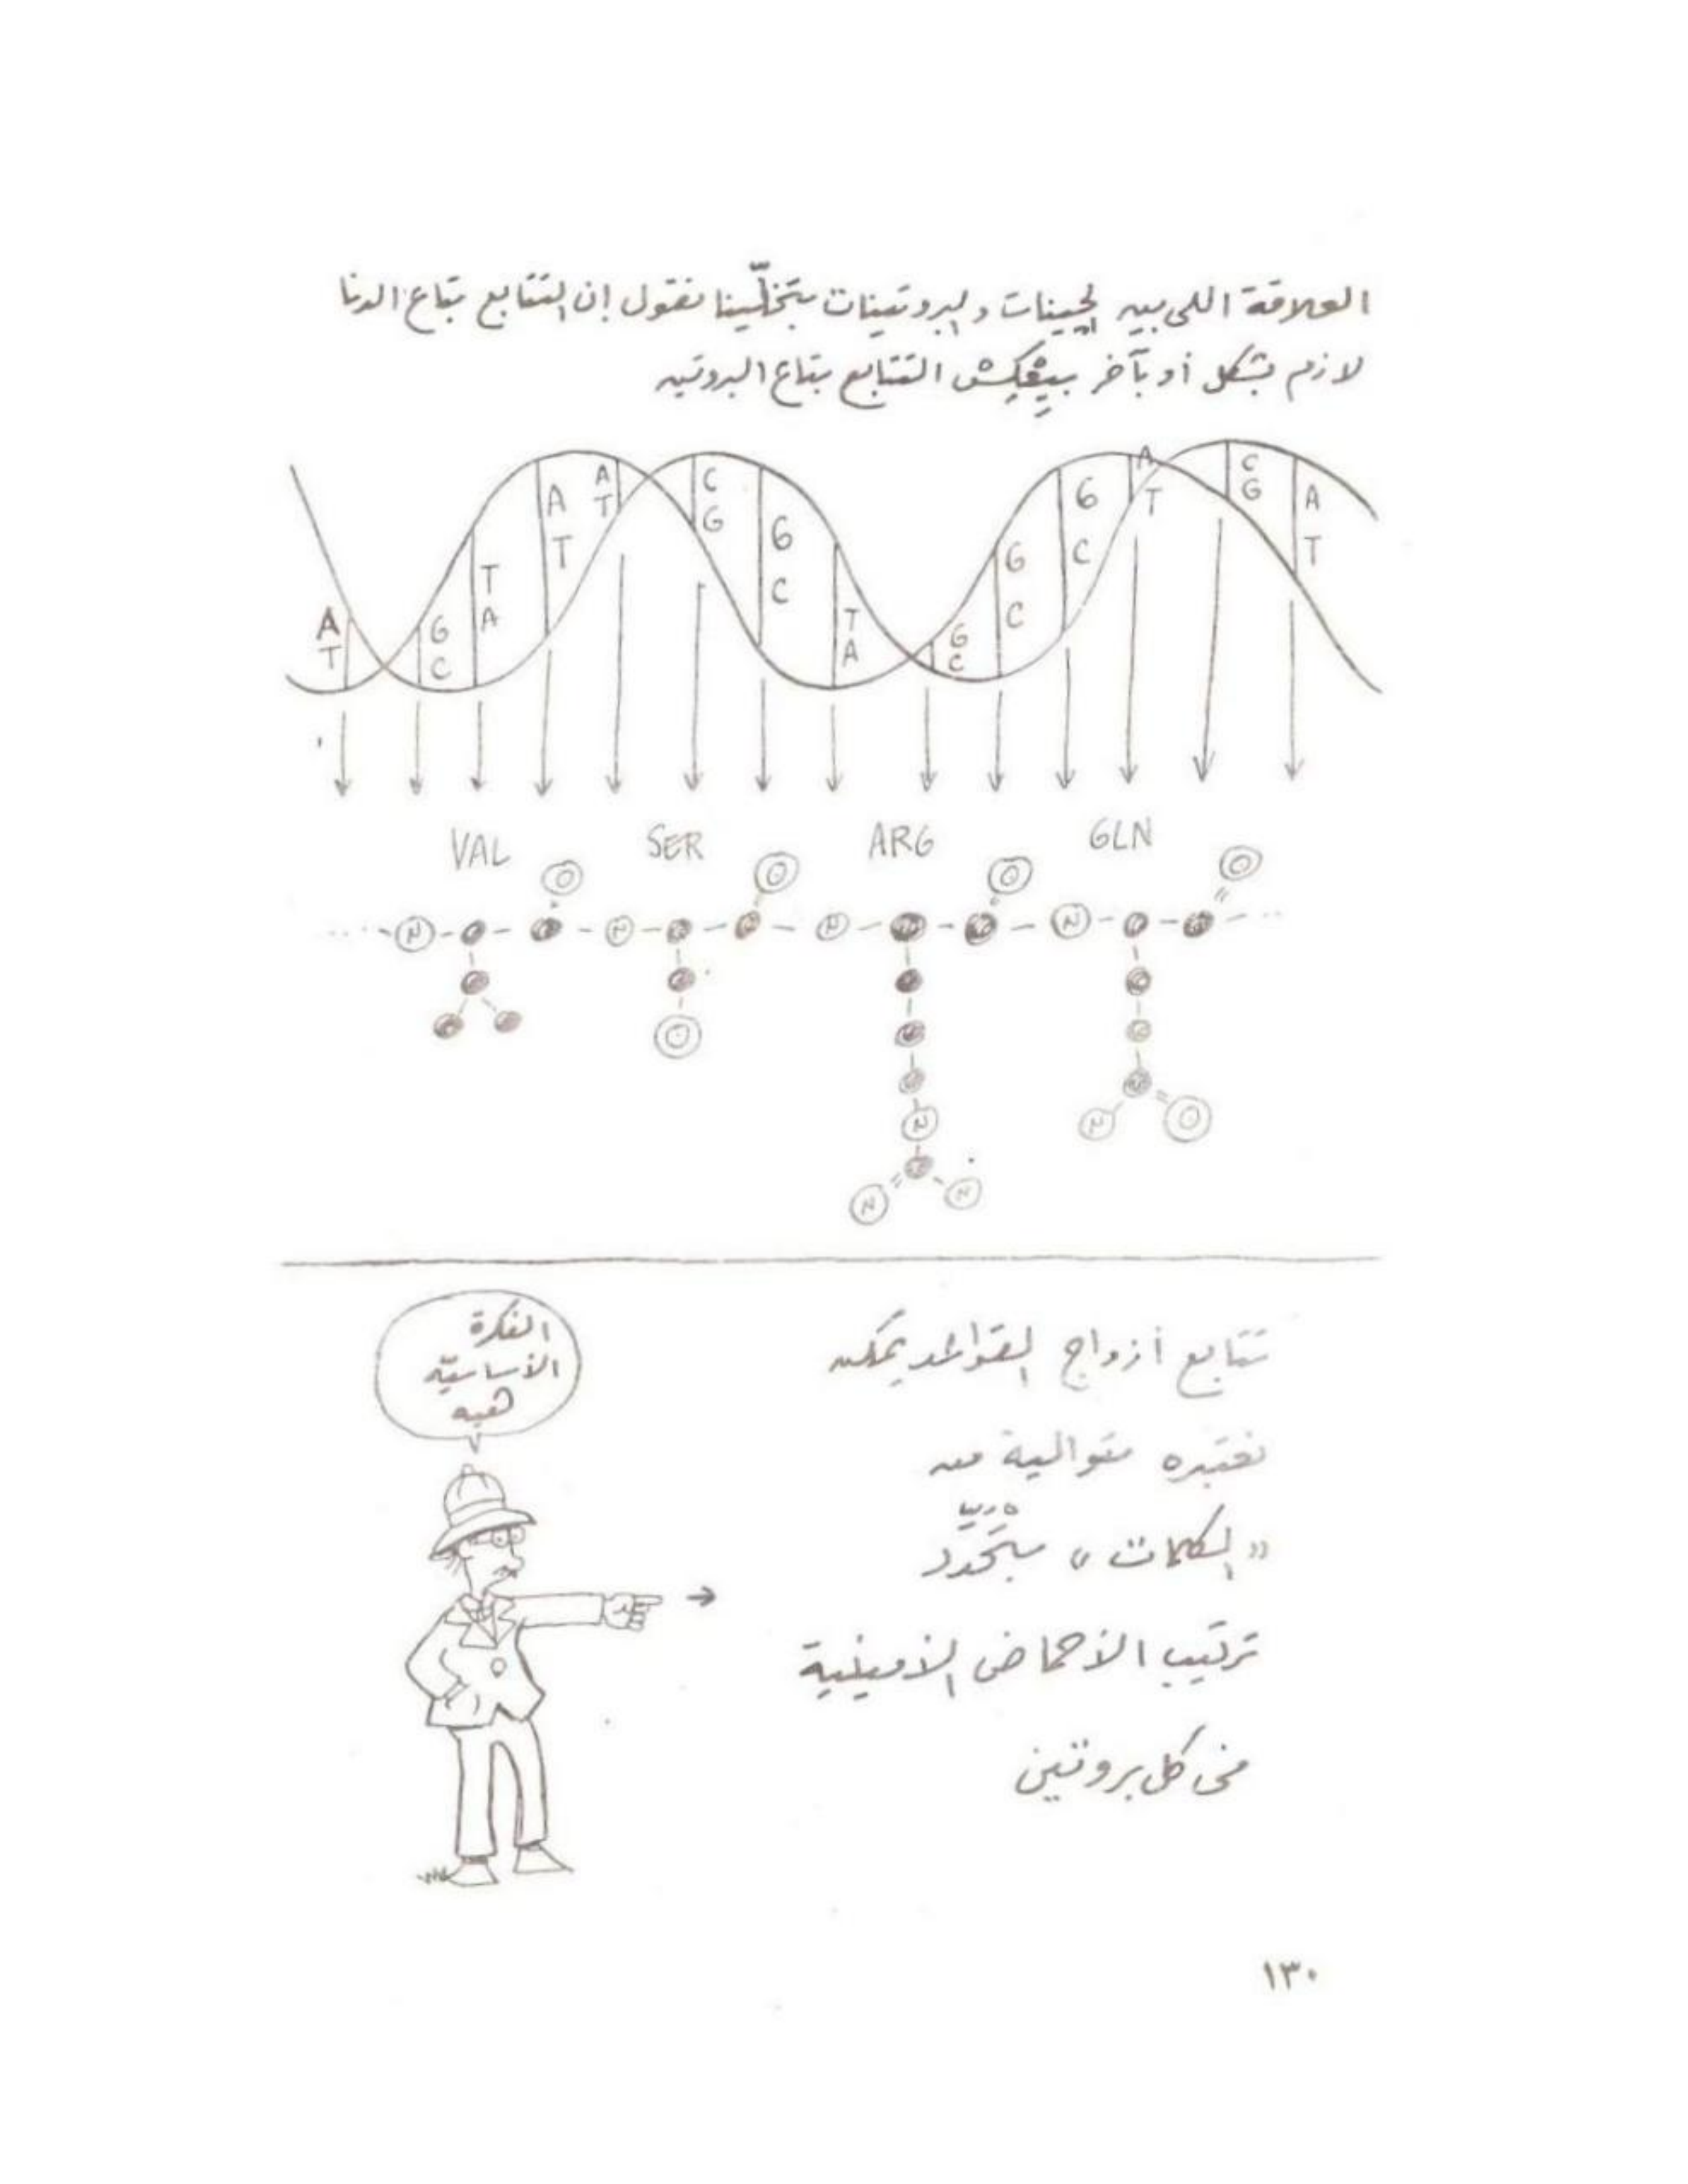 العلاقة اللي بين الجينات والبروتينات بتخلّينا نقول إن التتابع بتاع الدنا
لازم بشكل أو بآخر بيعكس التتابع بتاع البروتين
A T
G C
T A
A T
A T
C G
G C
T A
G C
G C
G C
A T
C G
A T
VAL SER ARG GLN
O O O O
N N N N
O
N
N O
N N
الفكرة
الأساسيّة
هيه
تتابع أزواج القواعد يمكن
نعتبره متوالية من
«الكلمات» بتحدد
ترتيب الأحماض الأمينية
في كل بروتين
١٣٠